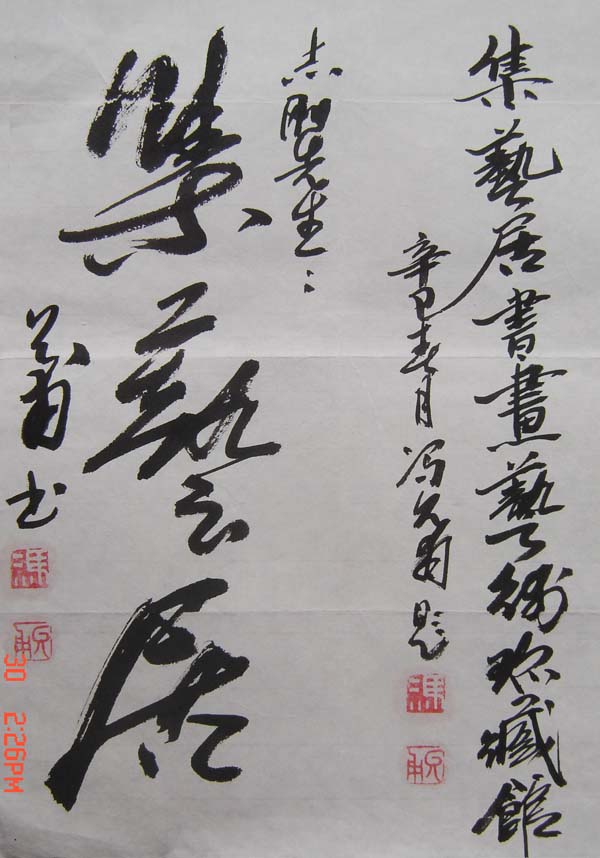 集藝居書畫藝術珍藏館
辛巳春月 馮兌翁題
志剛先生:
集藝居
翁书
30 2:26PM